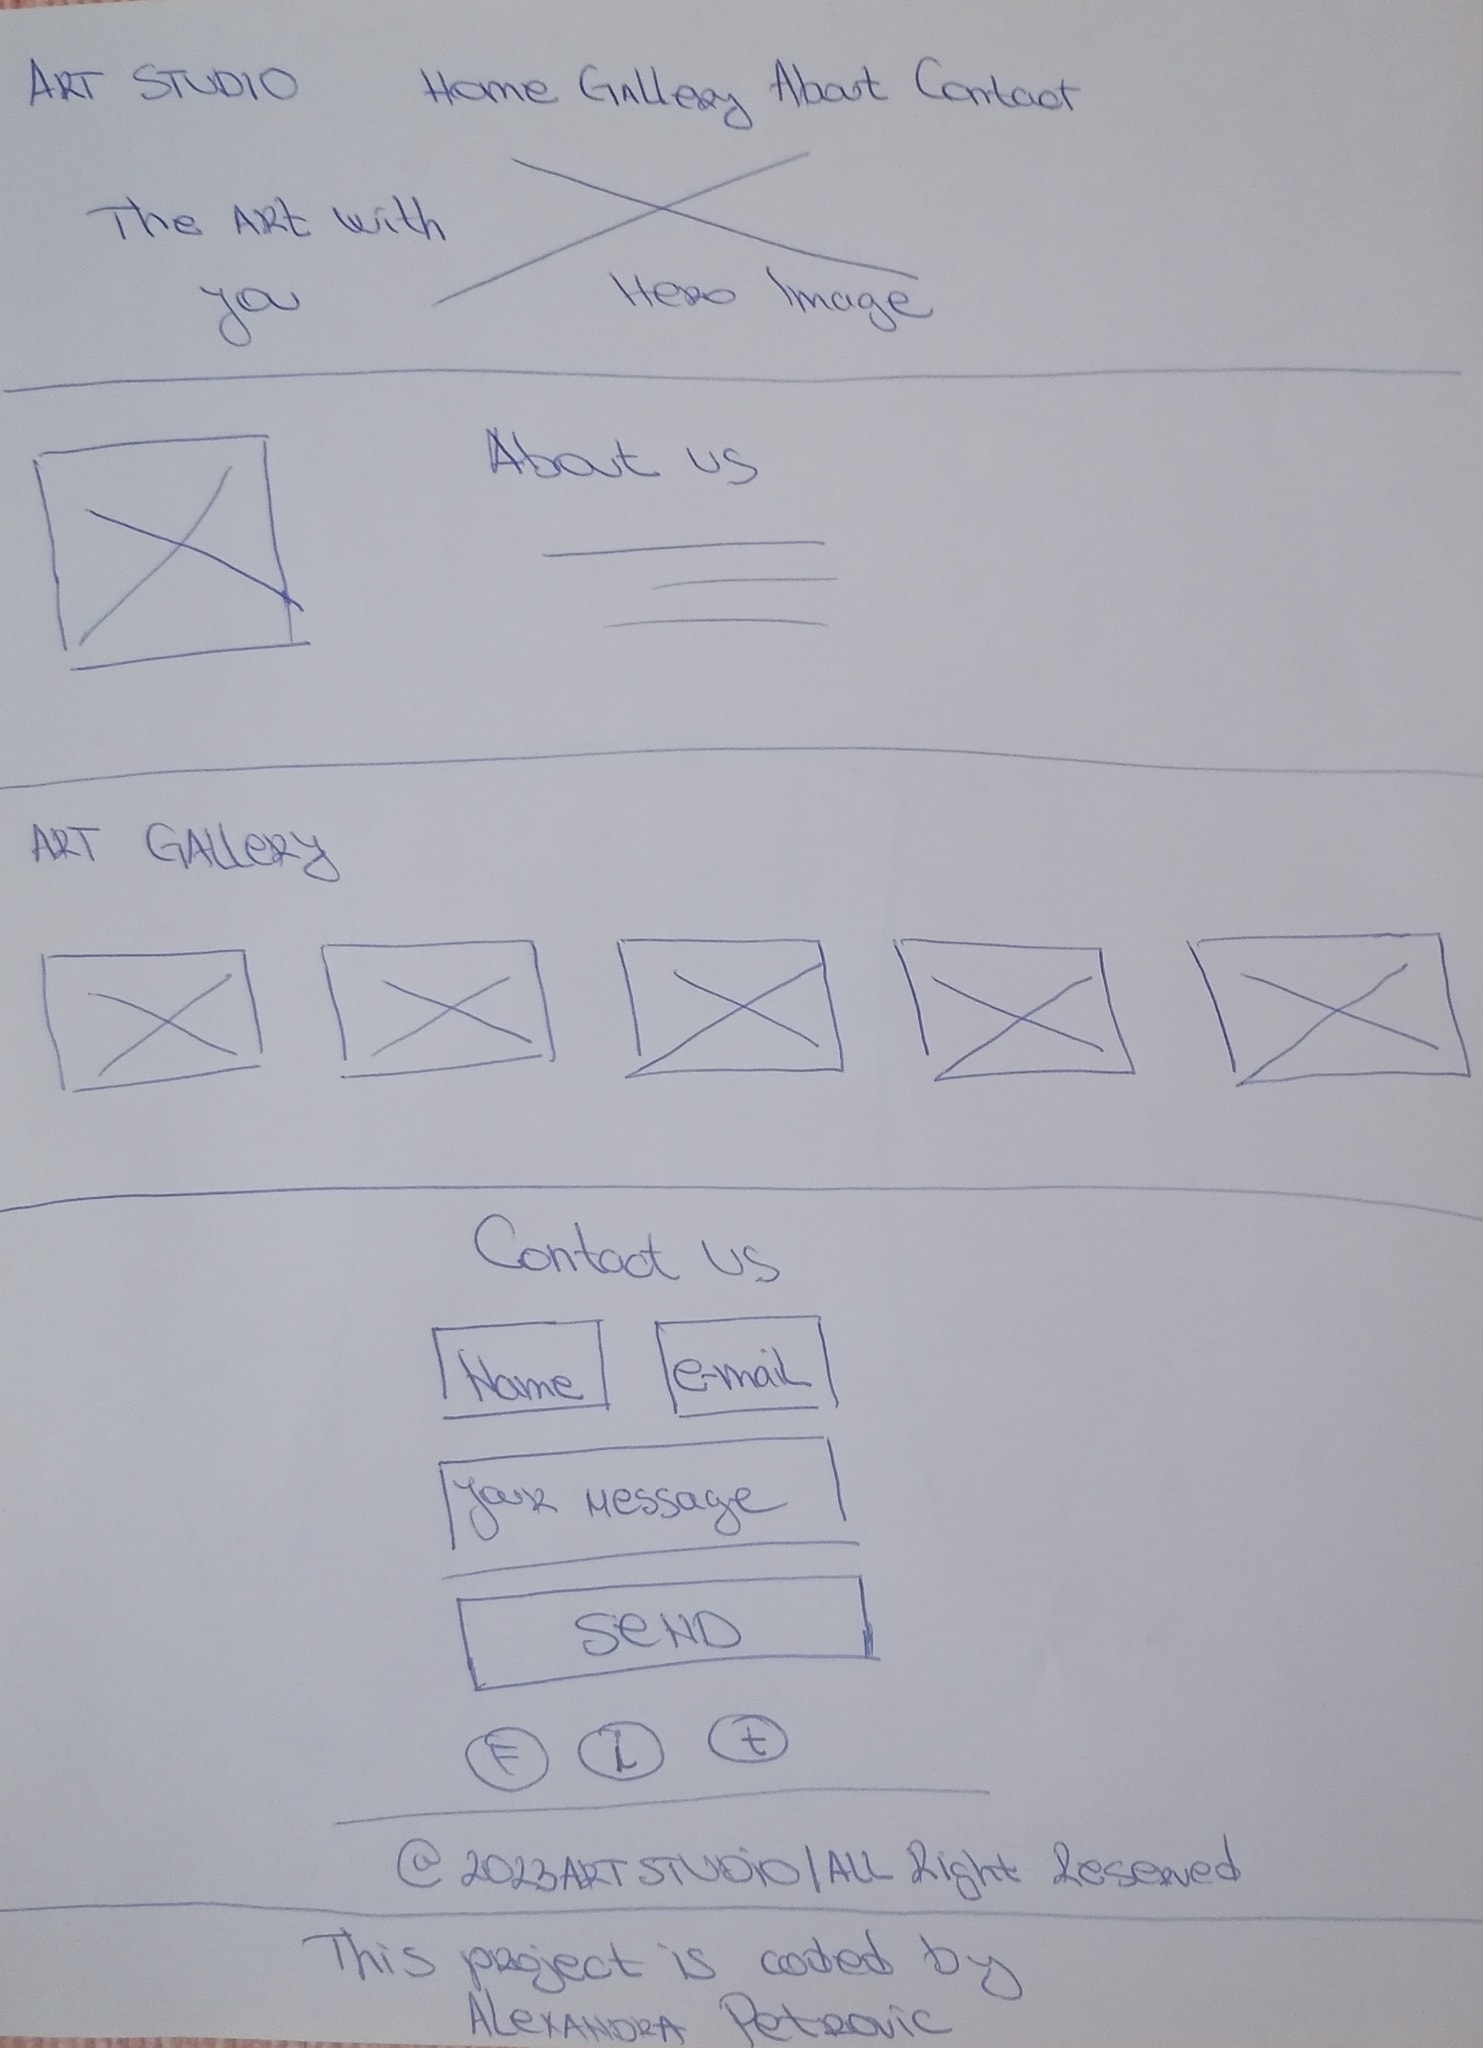 ART STUDIO Home Gallery About Contact
The ART with
you
Hero Image
About us
ART GALLERY
Contact us
Name e-mail
your message
SEND
F I t
@ 2023 ART STUDIO / ALL Right Reserved
This project is coded by
ALEXANDRA Petrovic